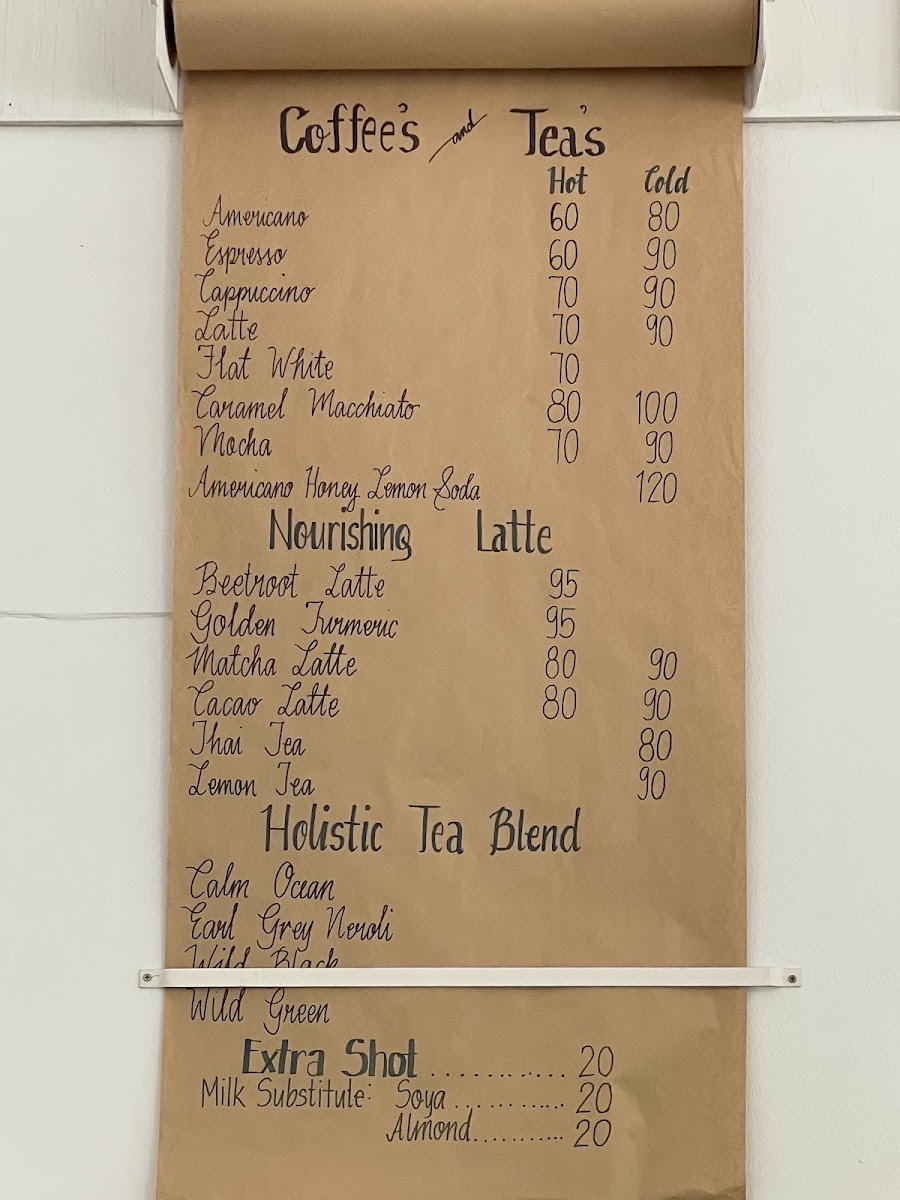 Coffee's and Tea's
Hot Cold
Americano 60 80
Espresso 60 90
Cappuccino 70 90
Latte 70 90
Flat White 70
Caramel Macchiato 80 100
Mocha 70 90
Americano Honey Lemon Soda 120
Nourishing Latte
Beetroot Latte 95
Golden Turmeric 95
Matcha Latte 80 90
Cacao Latte 80 90
Thai Tea 80
Lemon Tea 90
Holistic Tea Blend
Calm Ocean
Earl Grey Neroli
Wild Black
Wild Green
Extra Shot ............ 20
Milk Substitute: Soya ............ 20
Almond ........... 20